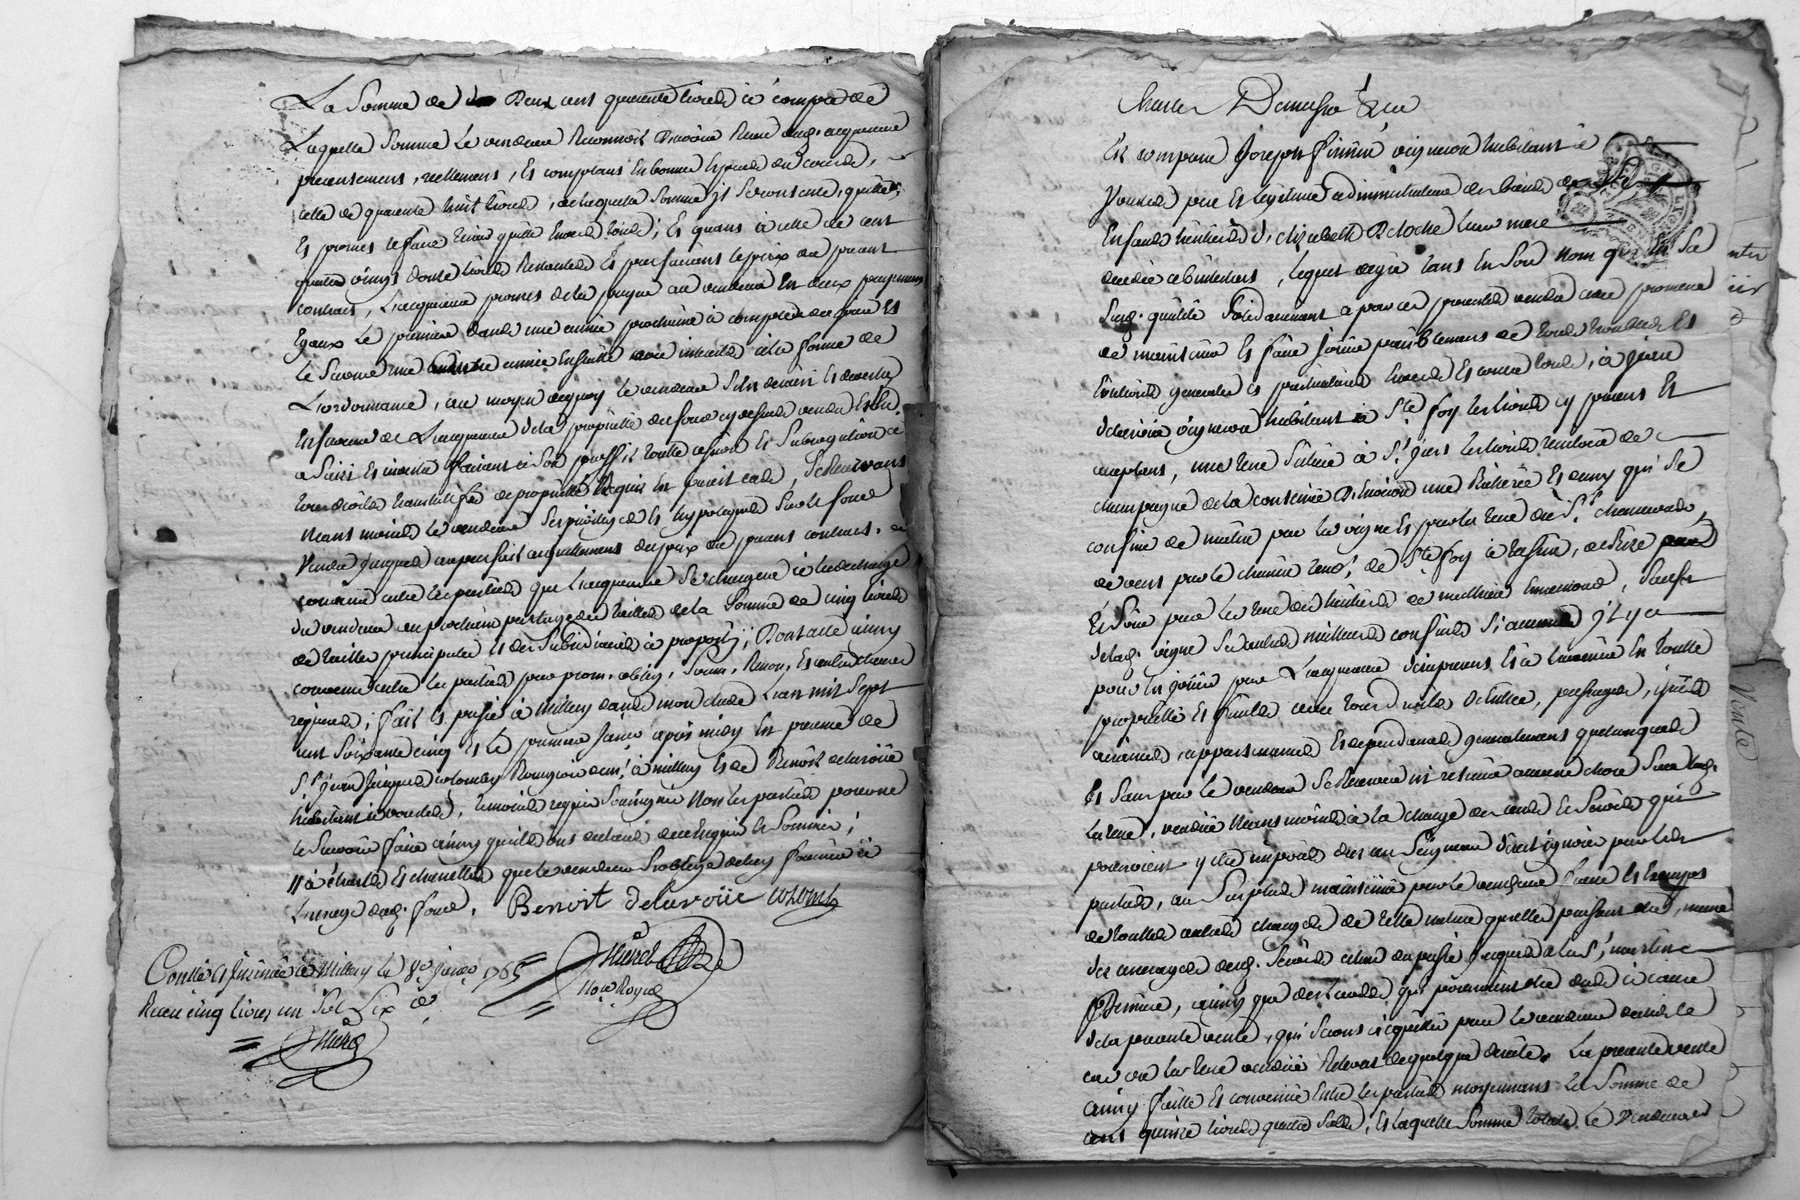 La Somme de Deux cent quarente livres à compte de
Laquelle Somme Le vendeur Reconnoit avoir Receu dud. acquereur
presentement, réellement, Et comptant En bonne Espece du cours,
celle de quarente huit livres, de laquelle Somme il Se contente, quitte,
Et promet le faire tenir quitte Envers touts; Et quant à celle de cent
quatre vingt douze livres Restantes Et parfaisant le prix du present
contrat, L'acquereur promet de la payer au vendeur En deux payements
Egaux Le premier dans une année prochaine à compter de ce jour Et
Le Second une année Ensuitte avec interets à la forme de
L'ordonnance, au moyen de quoy le vendeur S'est demis Et devestu
En faveur de L'acquereur de la propriété du fond cy dessus vendu Et l'en
a Saisi Et investi faisant à Son proffit toutte cession Et Subrogation de
tous droits translatifs de propriété Requis En pareil cas, Se Reservant
Neant moins le vendeur Ses privileges Et hypoteques Sur le fond
Vendu jusques au parfait acquittement du prix du present contrat.
convenu entre les parties que L'acquereur Se chargera à la decharge
du vendeur au prochain partage des tailles de la Somme de cinq livres
de taille principale Et des Subsidiaires à proport; Dont acte ainsy
convenu entre les parties pour prom. oblig. Soum. Renon. Et autres clauses
requises; fait Et passé à Millery dans mon etude L'an mil Sept
cent Soixante cinq Et le premier Janv. après midy En presence de
Sr. Jean Jacques colomby Bourgeois dem.t à millery Et de Benoit delavoüe
habitant à vourles, temoins requis Soussignez Non les parties pour ne
le Sçavoir faire ainsy qu'ils ont declaré de ce Enquis Et Sommés;
à charles Et chanelles que le vendeur S'oblige de luy fournir à
L'usage dud. fond. Benoit Delavoüe colomb
Contlé Et Insinué à Millery Le 8e janv. 1765
Receu cinq livres un Sol Six d.
Not.re Royal
Par devant
Est comparu Joseph vigneron habitant à
Yvours pere Et legitime administrateur des biens de Ses
Enfants heritiers d'elizabeth Deloche leur mere
decedée ab intestat, Lequel de gré tant En Son Nom qu'en Sa
Susd. qualité Solidairement a par ces presentes vendu avec promesse
de maintenir Et faire joüir paisiblement de touts troubles Et
Evictions generales Et particulieres Envers Et contre touts, à
delavoüe vigneron habitant à Ste. foy les lions cy present Et
acceptant, une terre Située à St. genis les lions territoire de
champagne de la contenüe D'Environ une bicherée Et demy qui Se
confine de matin par la vigne Et par la terre du Sr. chenevard,
de vent par le chemin tend.t de Ste. foy à tassin, de bize
Et Soir par la terre des heritiers de mathieu, Sauf
de lad. vigne Ses autres meilleurs confins Si aucuns il y a
pour En joüir par L'acquereur dès à present Et à l'avenir En toutte
proprieté Et fruits avec touts droits d'Entrée, passages, issües
aisances, appartenances Et dependances generalement quelconques
Et Sans par le vendeur Se Reserver ni retenir aucune chose Sur lad.
terre, vendüe Neant moins à la charge des cens Et Servis qui
pourroient y être imposés dus au Seigneur direct ignoré par les
parties, au Surplus maintenüe par le vendeur franche Et Exempte
de touttes autres charges de telle nature qu'elles puissent être, même
des arrerages desd. Servis echus du passé jusques à la St. martin
Derniere, ainsy que des laods qui pourroient être dus à cause
de la presente vente, qui Seront acquittés par le vendeur
cas où la terre vendüe Relevat de quelque directe. La presente vente
ainsy faitte Et convenüe Entre les parties moyennant La Somme de
cent quinze livres quatre Sols, Et laquelle Somme totale, le vendeur
Vente